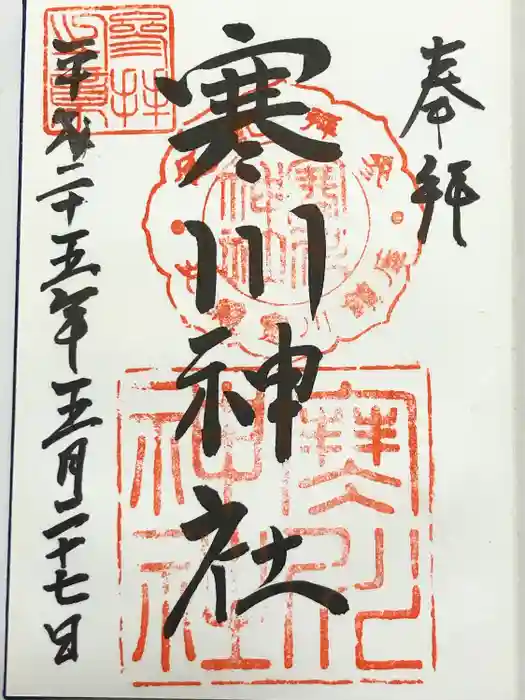 奉拝
寒川神社
平成二十五年五月二十七日
参拝之章
寒川神社